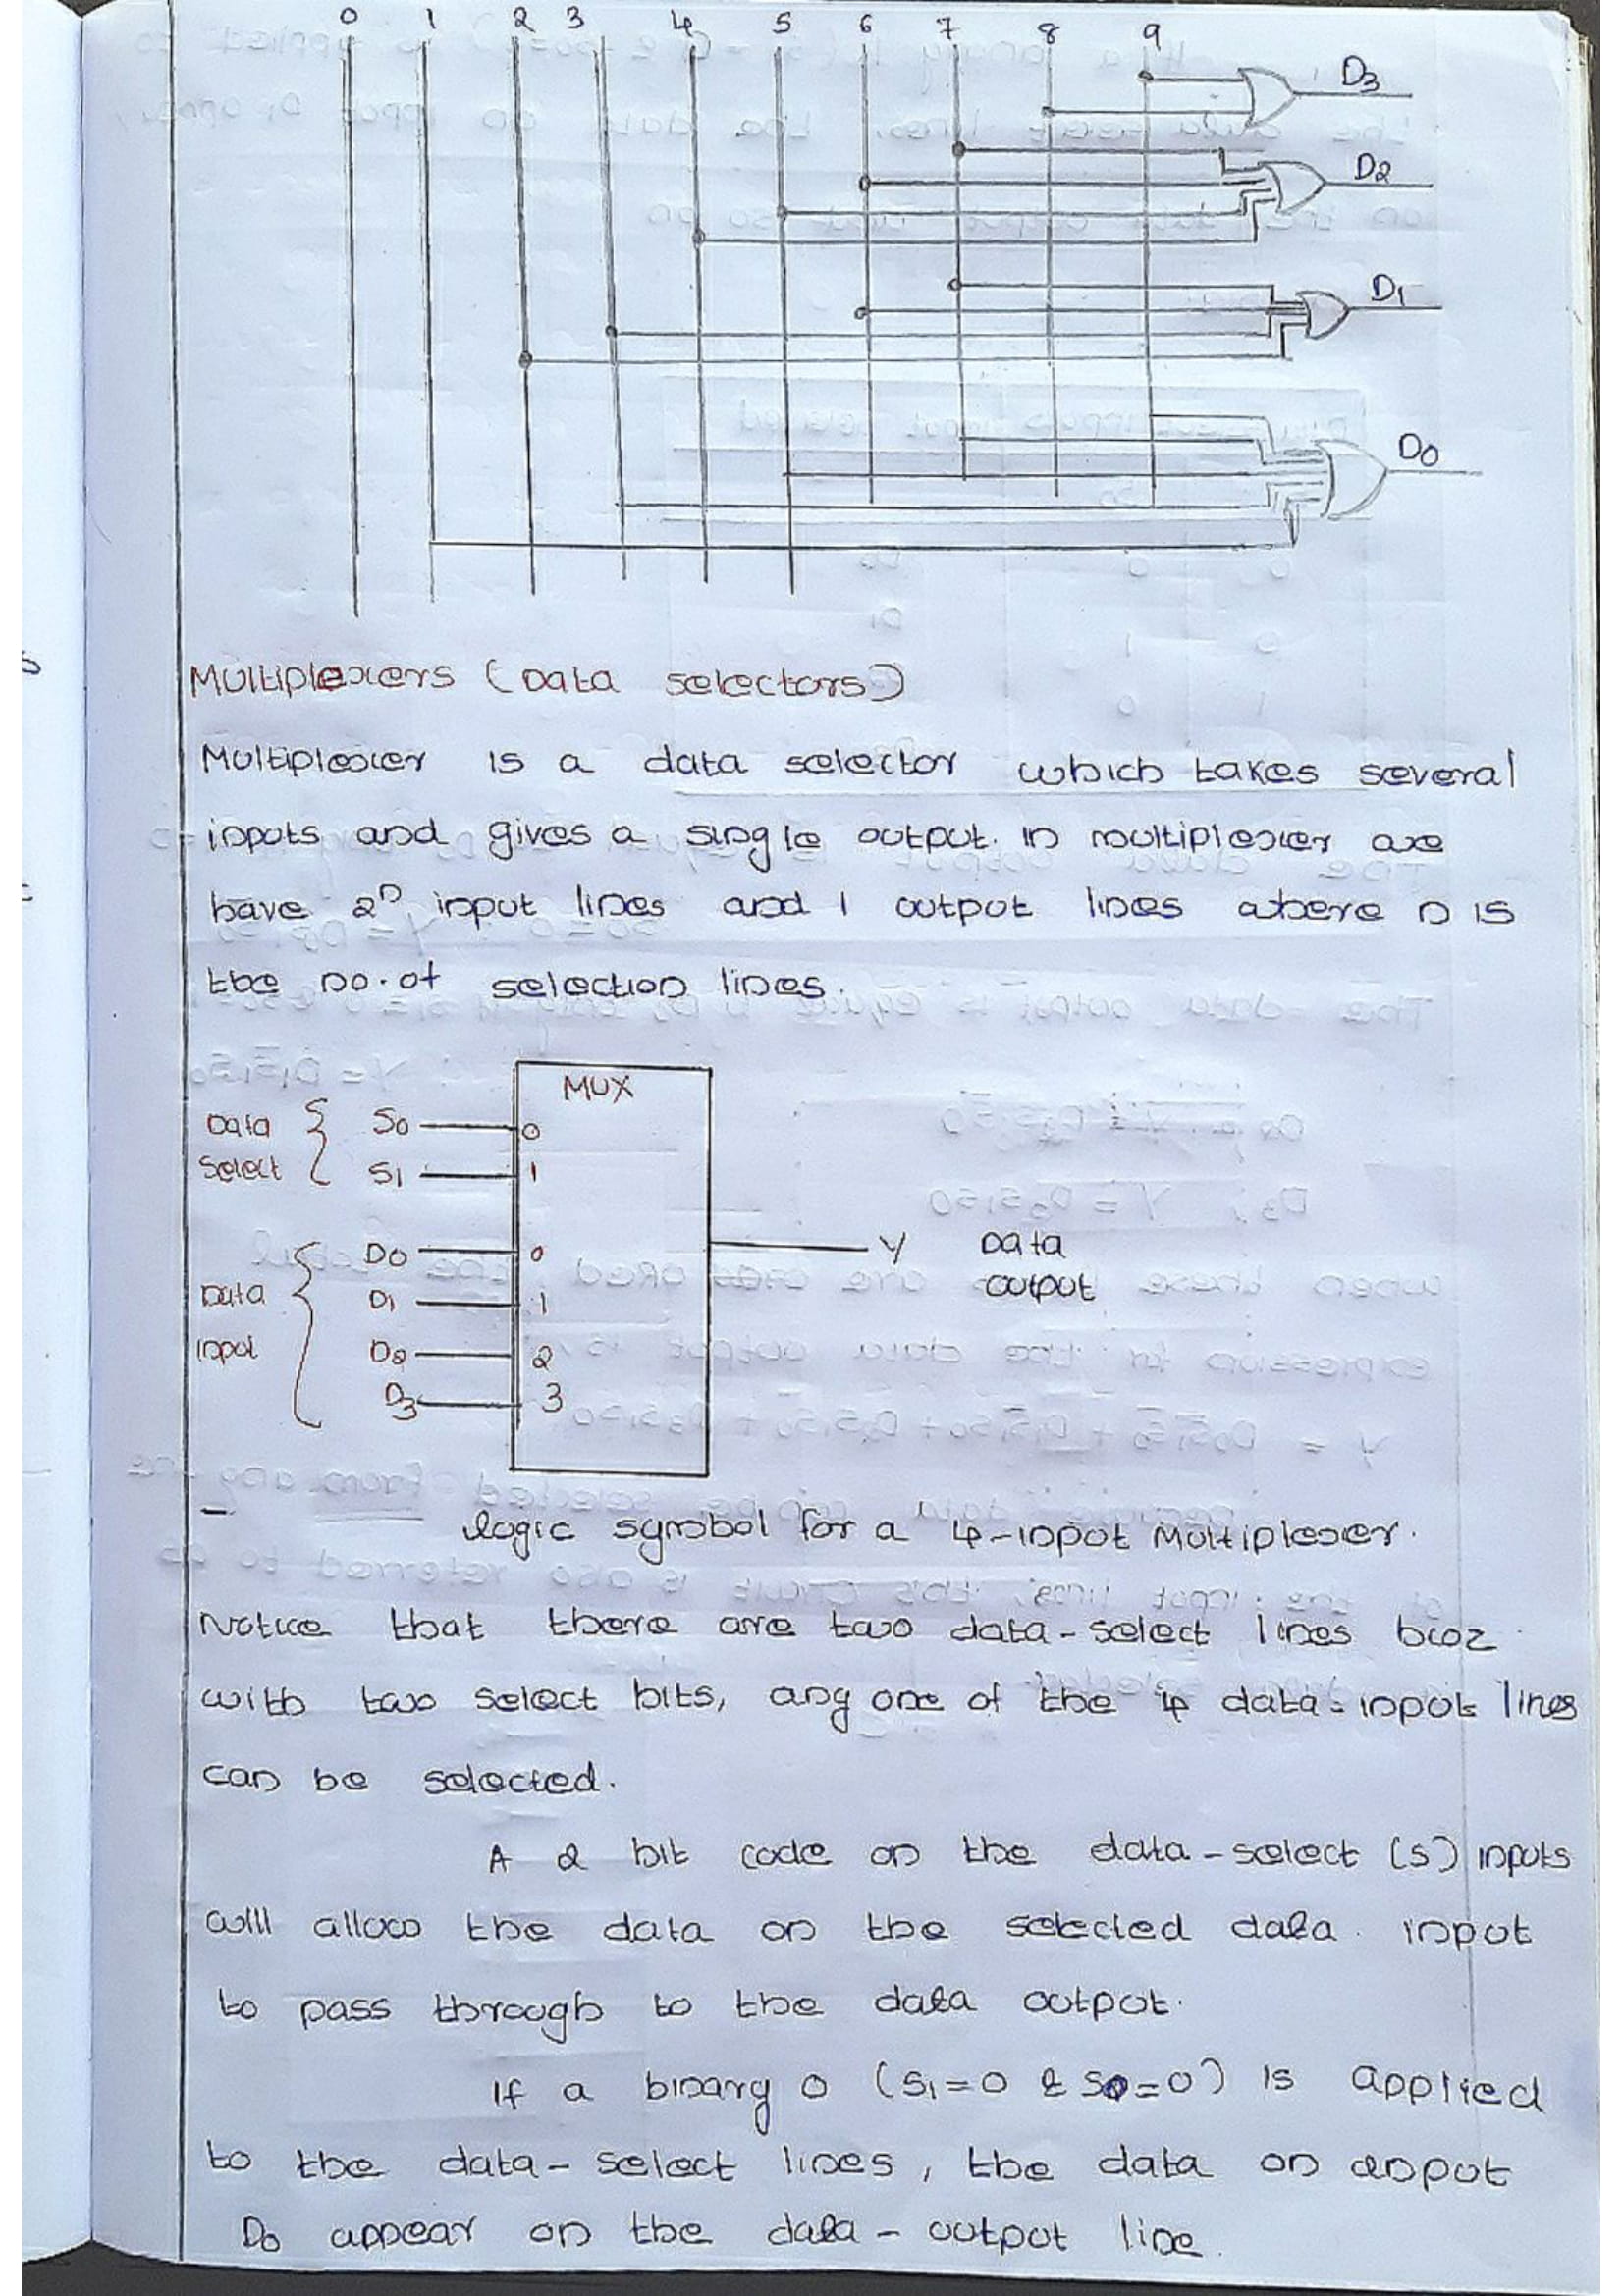 0 1 2 3 4 5 6 7 8 9
D3
D2
D1
D0
Multiplexers (Data selectors)
Multiplexer is a data selector which takes several
inputs and gives a single output. In multiplexer are
have 2ⁿ input lines and 1 output lines where n is
the no. of selection lines.
MUX
Data
Select
S0 0
S1 1
Data
Input
D0 0
D1 1
D2 2
D3 3
Y Data
output
logic symbol for a 4-input Multiplexer.
Notice that there are two data-select lines bcoz
with two select bits, any one of the 4 data-input lines
can be selected.
A 2 bit code on the data-select (s) inputs
will allow the data on the selected data input
to pass through to the data output.
If a binary 0 (S1=0 & S0=0) is applied
to the data-select lines, the data on input
D0 appear on the data-output line.